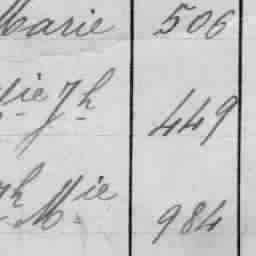 Marie 506
Mie Jh 449
Jh Mie 984